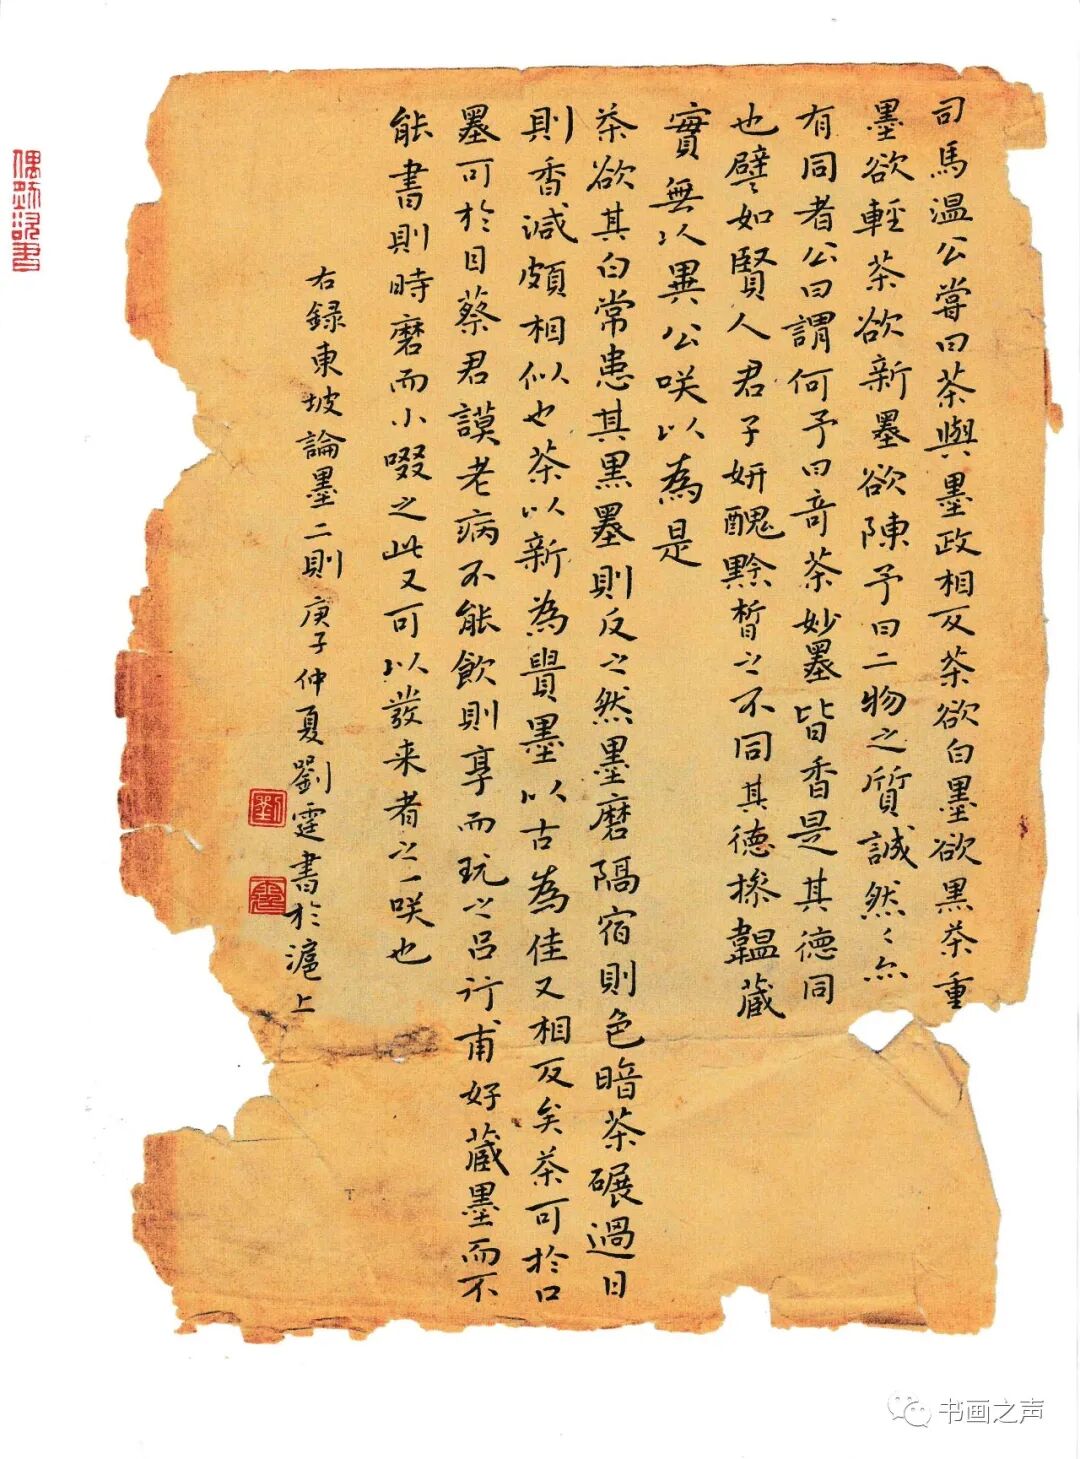 司馬温公嘗曰茶與墨政相反茶欲白墨欲黑茶重
墨欲輕茶欲新墨欲陳予曰二物之質誠然然亦
有同者公曰謂何予曰奇茶妙墨皆香是其德同
也譬如賢人君子妍醜黔晳之不同其德操韞藏
實無以異公咲以為是
茶欲其白常患其黑墨則反之然墨磨隔宿則色暗茶碾過日
則香減頗相似也茶以新為貴墨以古為佳又相反矣茶可於口
墨可於目蔡君謨老病不能飲則享而玩之吕行甫好藏墨而不
能書則時磨而小啜之此又可以發来者之一咲也
右録東坡論墨二則 庚子仲夏劉霆書於滬上
劉
霆
书画之声